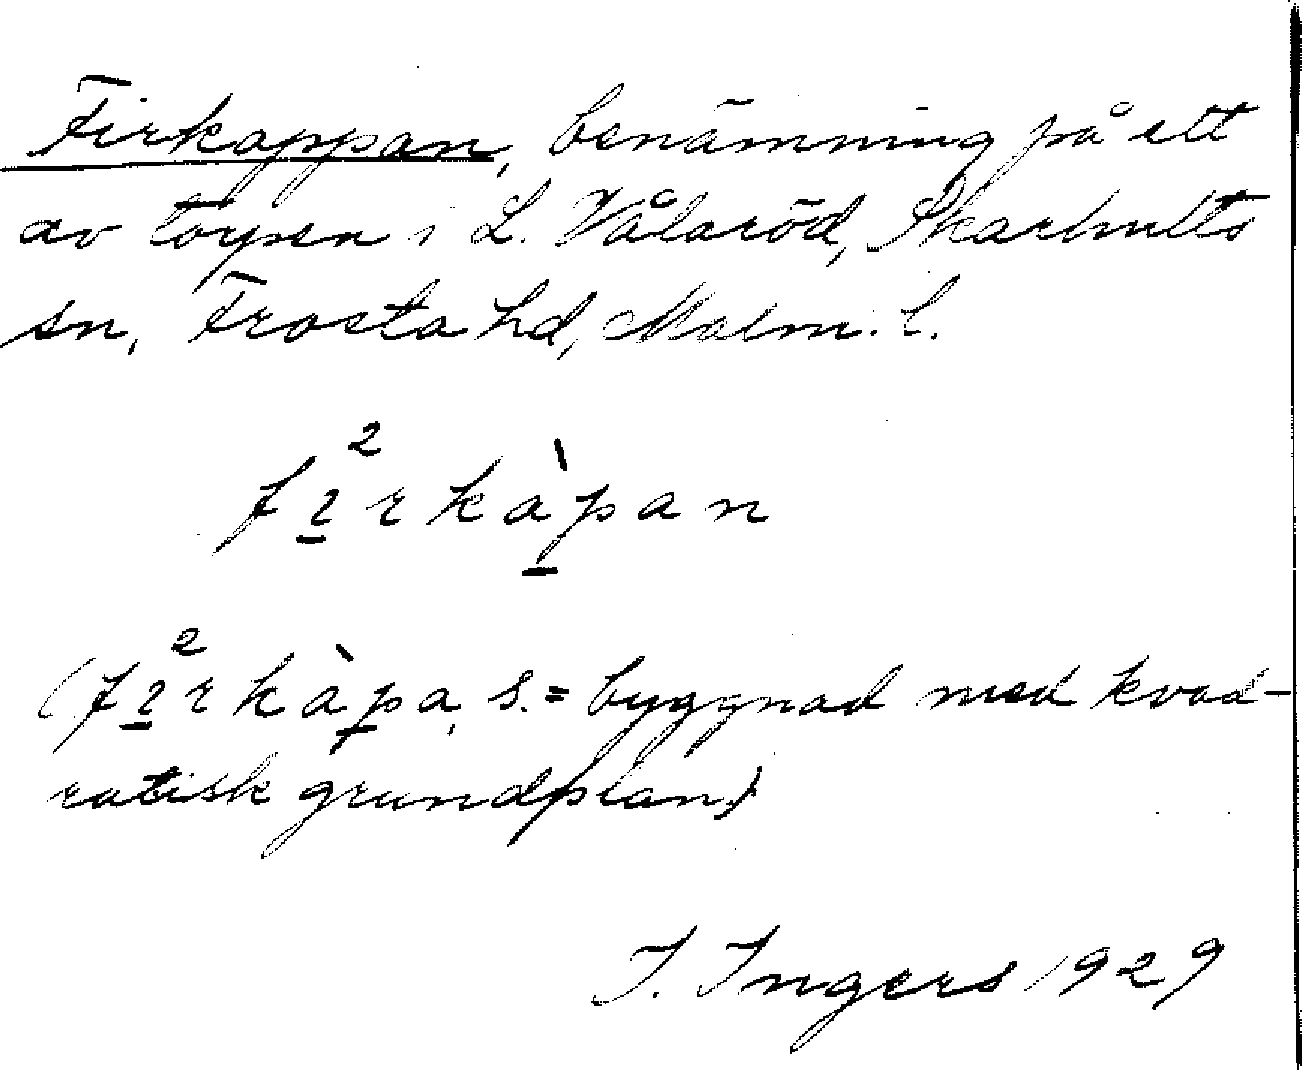 Firkappan, benämning på ett
av torpen i L. Vålaröd, Skarhults
sn, Frosta hd, Malm. l.
fı²rkàpan
(fı²rkàpa, s. = byggnad med kvad-
ratisk grundplan)
I. Ingers 1929